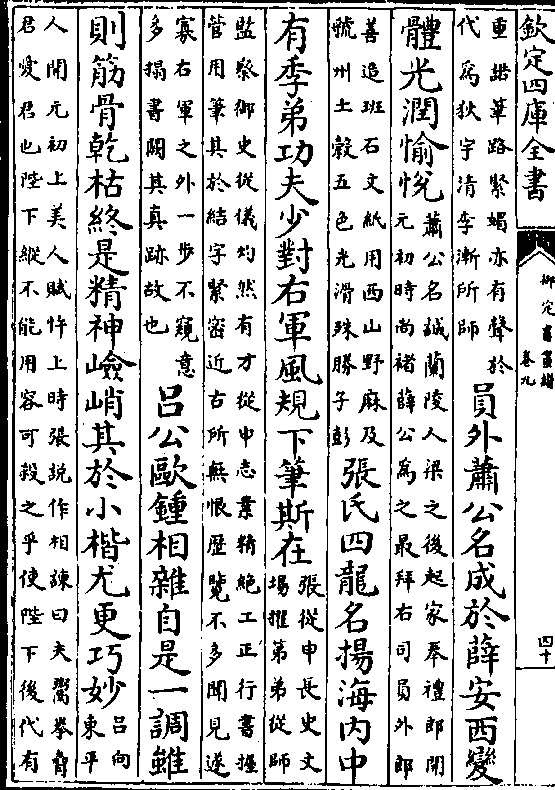 欽定四庫全書
御定書畫譜
卷九
四十
垂諾華路緊媚亦有聲於
代為狄字清李漸所師
員外蕭公名成於薛安西變
體光潤愉悅
蕭公名誠蘭陵人梁之後起家奉禮郎開
元初時尚褚薛公為之最拜右司員外郎
善造班石文紙用西山野麻及
虢州土榖五色光滑殊勝子彭
張氏四龍名揚海内中
有季弟功夫少對右軍風規下筆斯在
張從申長史文
場擢第弟從師
監察御史從儀灼然有才從申志業精絶工正行書握
管用筆其於結字緊密近古所無恨歴覽不多聞見遂
寡右軍之外一步不窺意
多搨書闕其真跡故也
呂公歐鍾相雜自是一調雖
則筋骨乾枯終是精神嶮峭其於小楷尤更巧妙
呂向
東平
人開元初上美人賦忤上時張說作相諫曰夫鬻拳脅
君愛君也陛下縱不能用容可殺之乎使陛下後代有